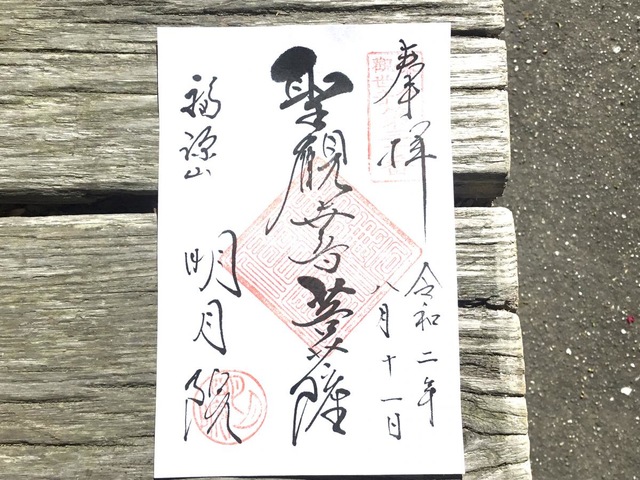 奉拝
令和二年
八月十一日
聖観世音菩薩
福源山
明月院